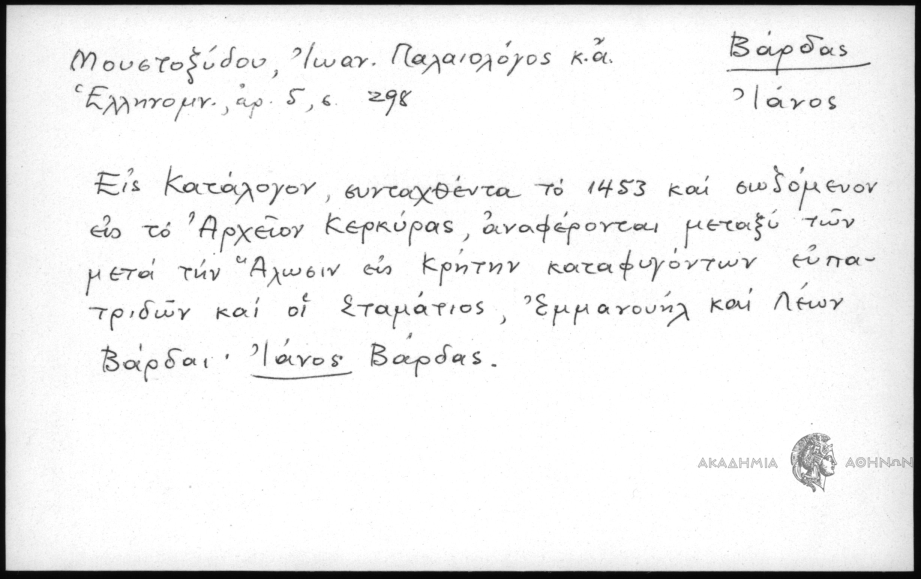 Μουστοξύδου, Ἰωαν. Παλαιολόγος κ.ἄ.
Ἑλληνομν., ἀρ. 5, σ. 298
Βάρδας
Ἰάνος
Εἰς Κατάλογον, συνταχθέντα τό 1453 καί σωζόμενον
εἰς τό Ἀρχεῖον Κερκύρας, ἀναφέρονται μεταξύ τῶν
μετά τήν Ἅλωσιν εἰς Κρήτην καταφυγόντων εὐπα-
τριδῶν καί οἱ Σταμάτιος, Ἐμμανουήλ καί Λέων
Βάρδαι· Ἰάνος Βάρδας.
ΑΚΑΔΗΜΙΑ ΑΘΗΝΩΝ